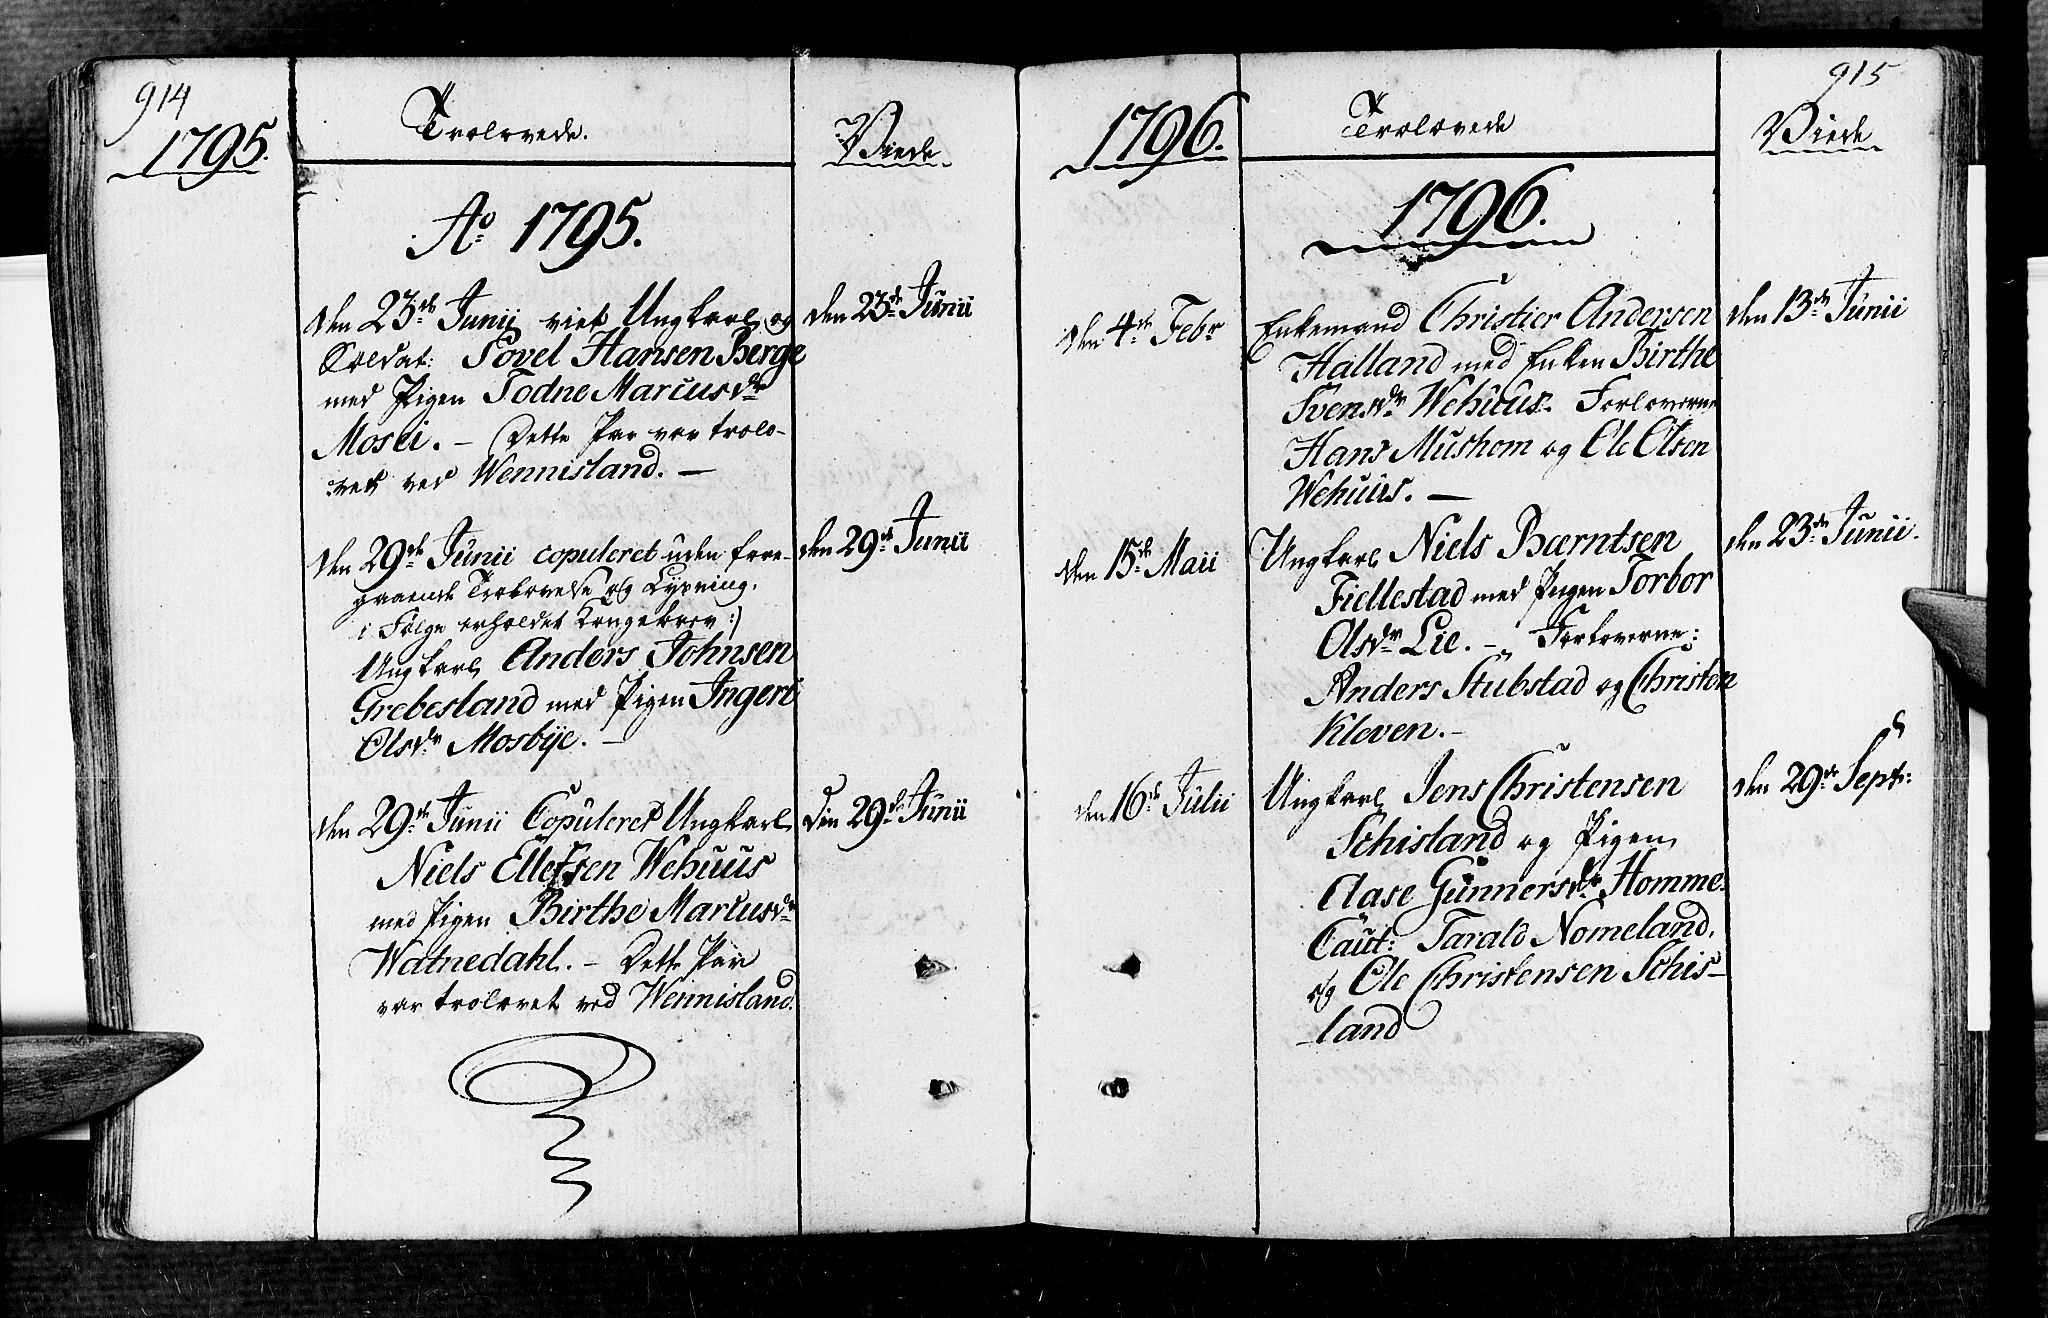 914
1795.
Trolovede.
Viede.
Ao 1795.
den 23de Junii viet Ungkarl og
Soldat: Sovel Hansen Berge
med Pigen Todne Marcusdr
Mosei. – Dette Par var trolo-
vet ved Wennisland. –
den 23de Junii
den 29de Junii copuleret uden fore-
gaaende Trolovelse og Lysning,
i Følge erholdet Kongebrev :)
Ungkarl Anders Johnsen
Grebesland med Pigen Ingeri
Olsdr Mosbye. –
den 29de Junii
den 29de Junii Copuleret Ungkarl
Niels Ellefsen Wehuus
med Pigen Birthe Marcusdr
Watnedahl. – Dette Par
var trolovet ved Wennisland.
den 29de Junii
915
1796.
Trolovede
Viede
1796.
den 4de Febr
Enkemand Christier Andersen
Halland med Enken Birthe
Svensdr Wehuus. Forloverne
Hans Mushom og Ole Olsen
Wehuus. –
den 13de Junii
den 15de Maii
Ungkarl Niels Bærntsen
Fiellestad med Pigen Torbor
Olsdr Lie. – Forloverne:
Anders Stubstad og Christen
Kleven. –
den 23de Junii.
den 16de Julii
Ungkarl Jens Christensen
Schisland og Pigen
Aase Gunnersdr Homme.
Caut: Tarald Nomeland,
og Ole Christensen Schis-
land
den 29de Sept: